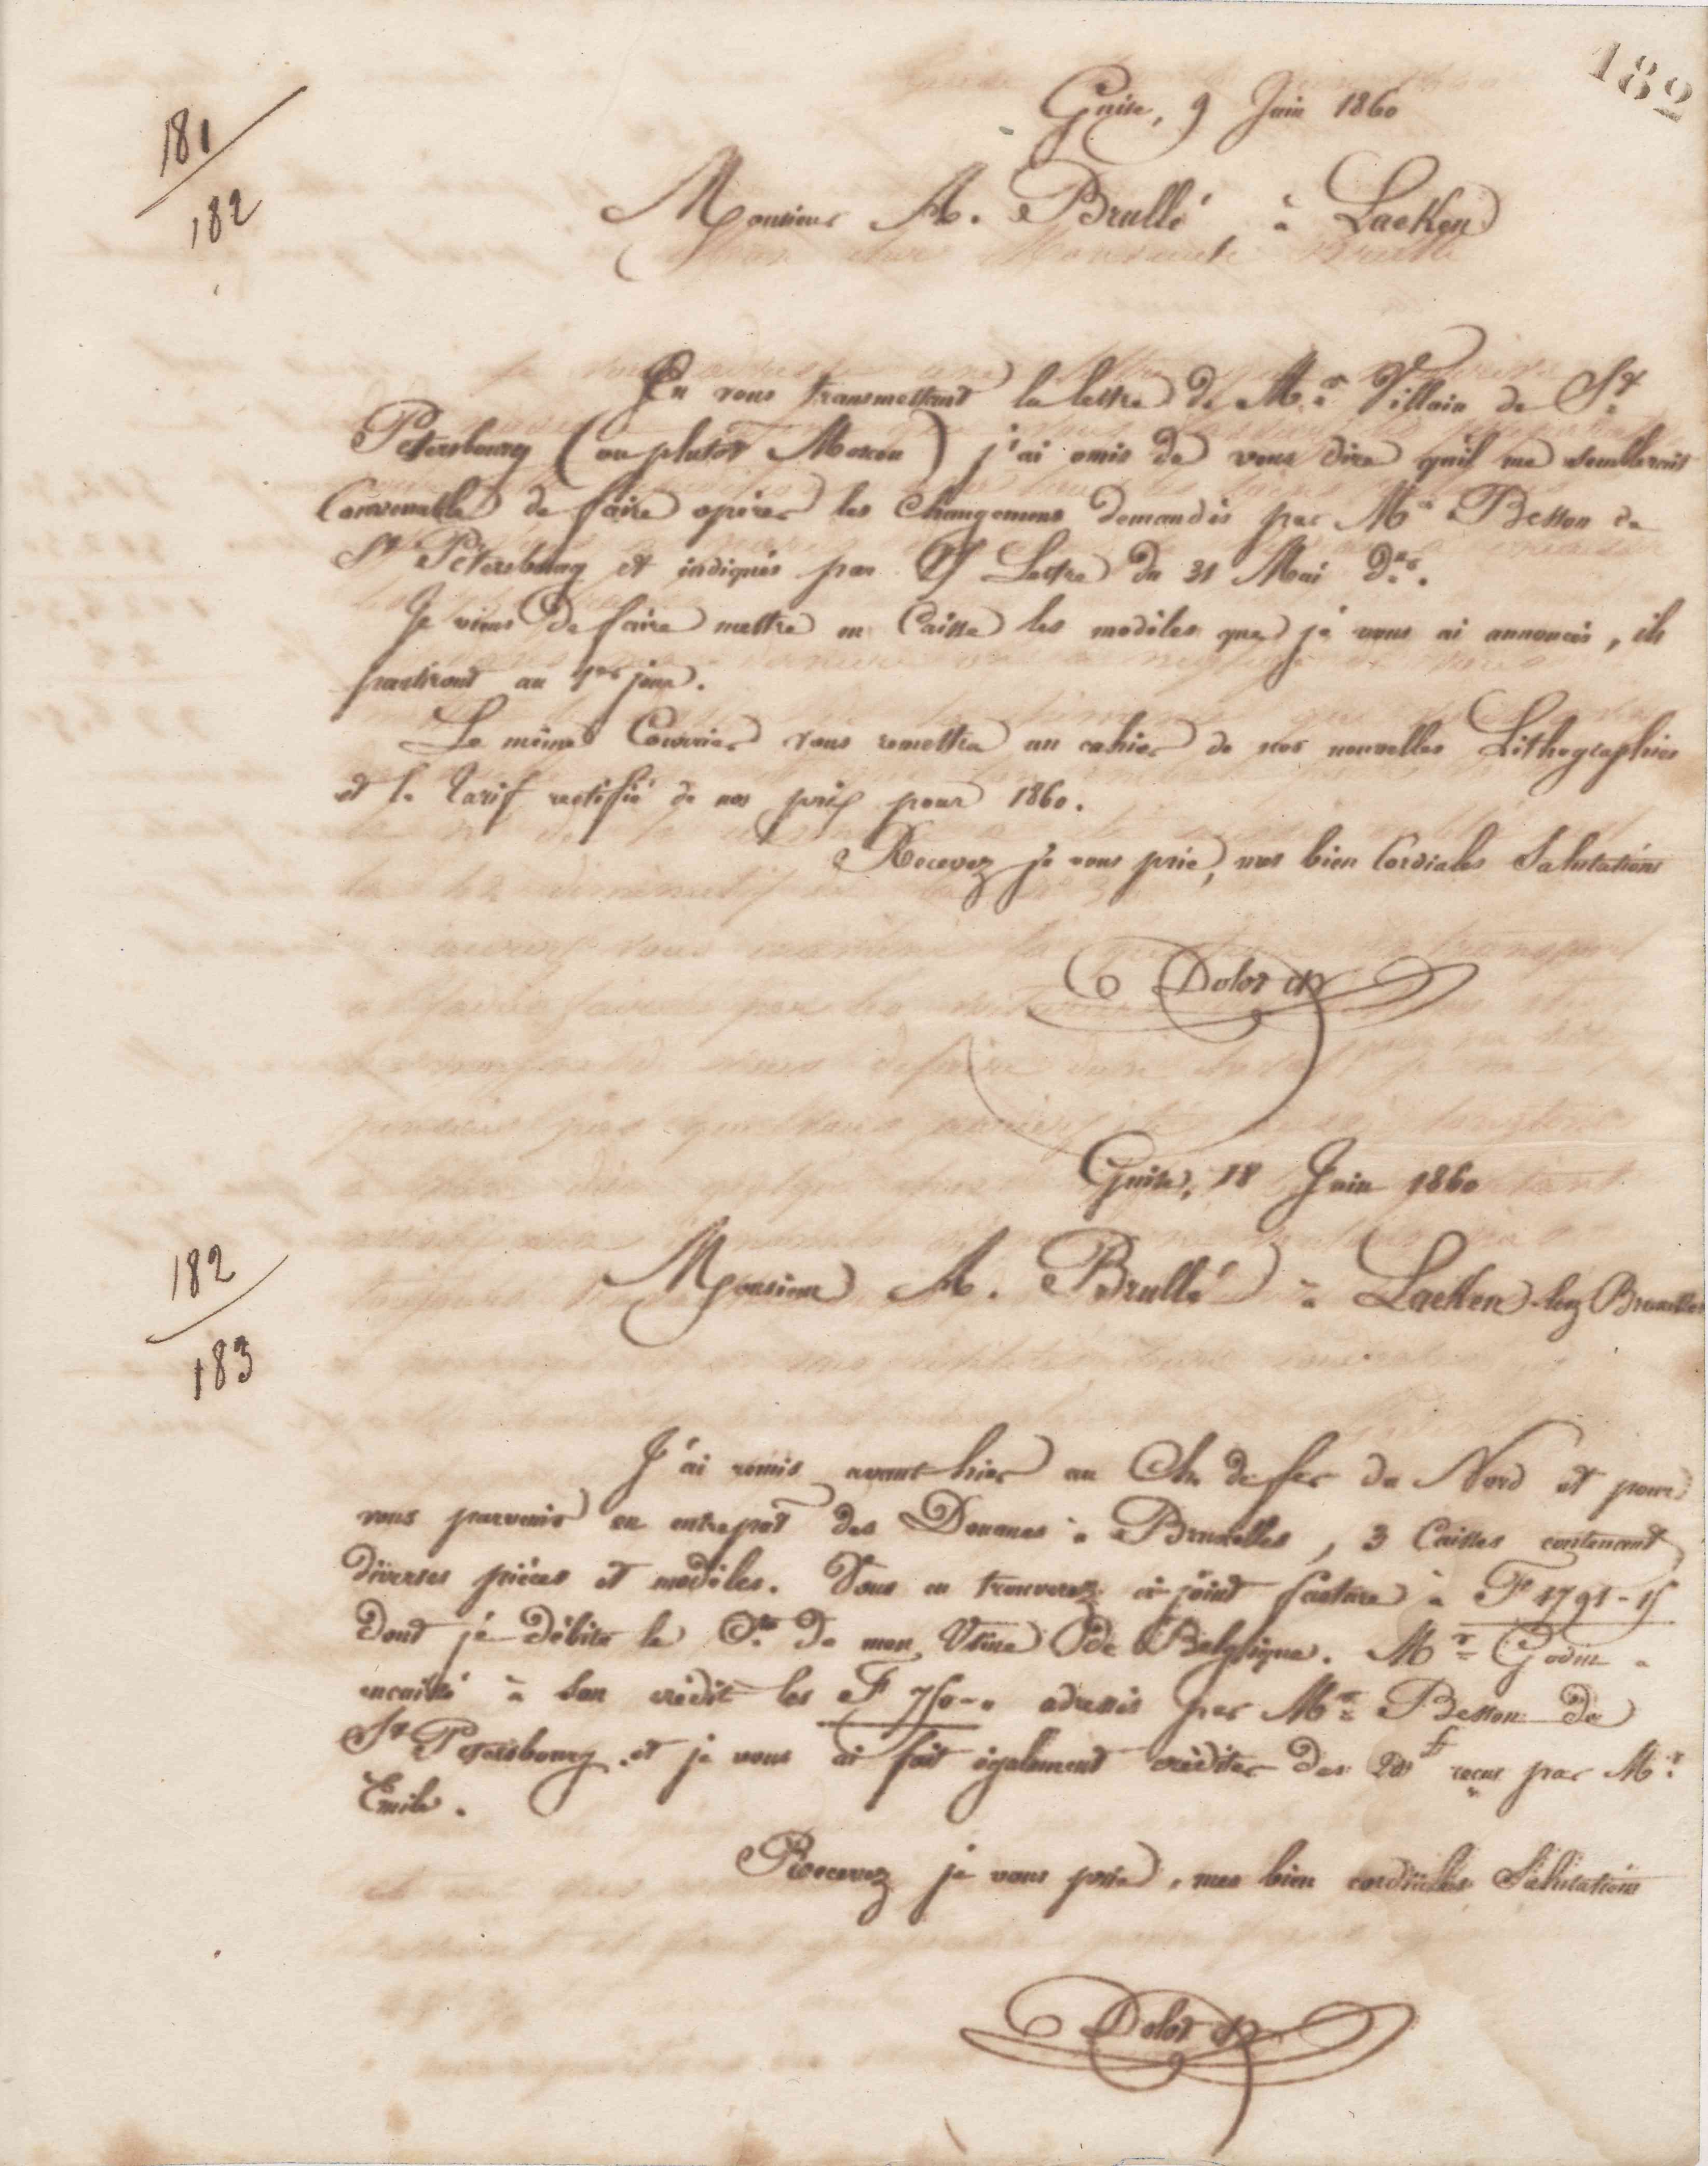 182
Guise, 9 Juin 1860
181
182
Monsieur A. Brullé, à Laeken
En vous transmettant la lettre de Mr Villain de St
Petersbourg (ou plutôt Moscou) j'ai omis de vous dire qu'il me semblerait
Convenable de faire opérer les changemens demandés par Mr Besson de
St Pétersbourg et indiqués par Lettre du 31 Mai der.
Je viens de faire mettre en Caisse les modèles que je vous ai annoncés, ils
partiront au 1er jour.
Le même Courrier vous remettra un cahier de nos nouvelles Lithographies
et le Tarif rectifié de nos prix pour 1860.
Recevez je vous prie, mes bien Cordiales Salutations
Dolot
Guise, 18 Juin 1860
182
183
Monsieur A. Brullé à Laeken-lez Bruxelles
J'ai remis avant hier au Ch. de fer du Nord et pour
vous parvenir en entrepôt des Douanes à Bruxelles, 3 Caisses contenant
diverses pièces et modèles. Vous en trouverez ci-joint facture à F 1791-15
dont je débite le Cte de mon Usine de Belgique. Mr Godin a
encaissé à son crédit les F 750-" adressés par Mr Besson de
St Petersbourg et je vous ai fait également créditer des 20f reçus par Mr
Emile.
Recevez je vous prie, mes bien cordiales Salutations
Dolot